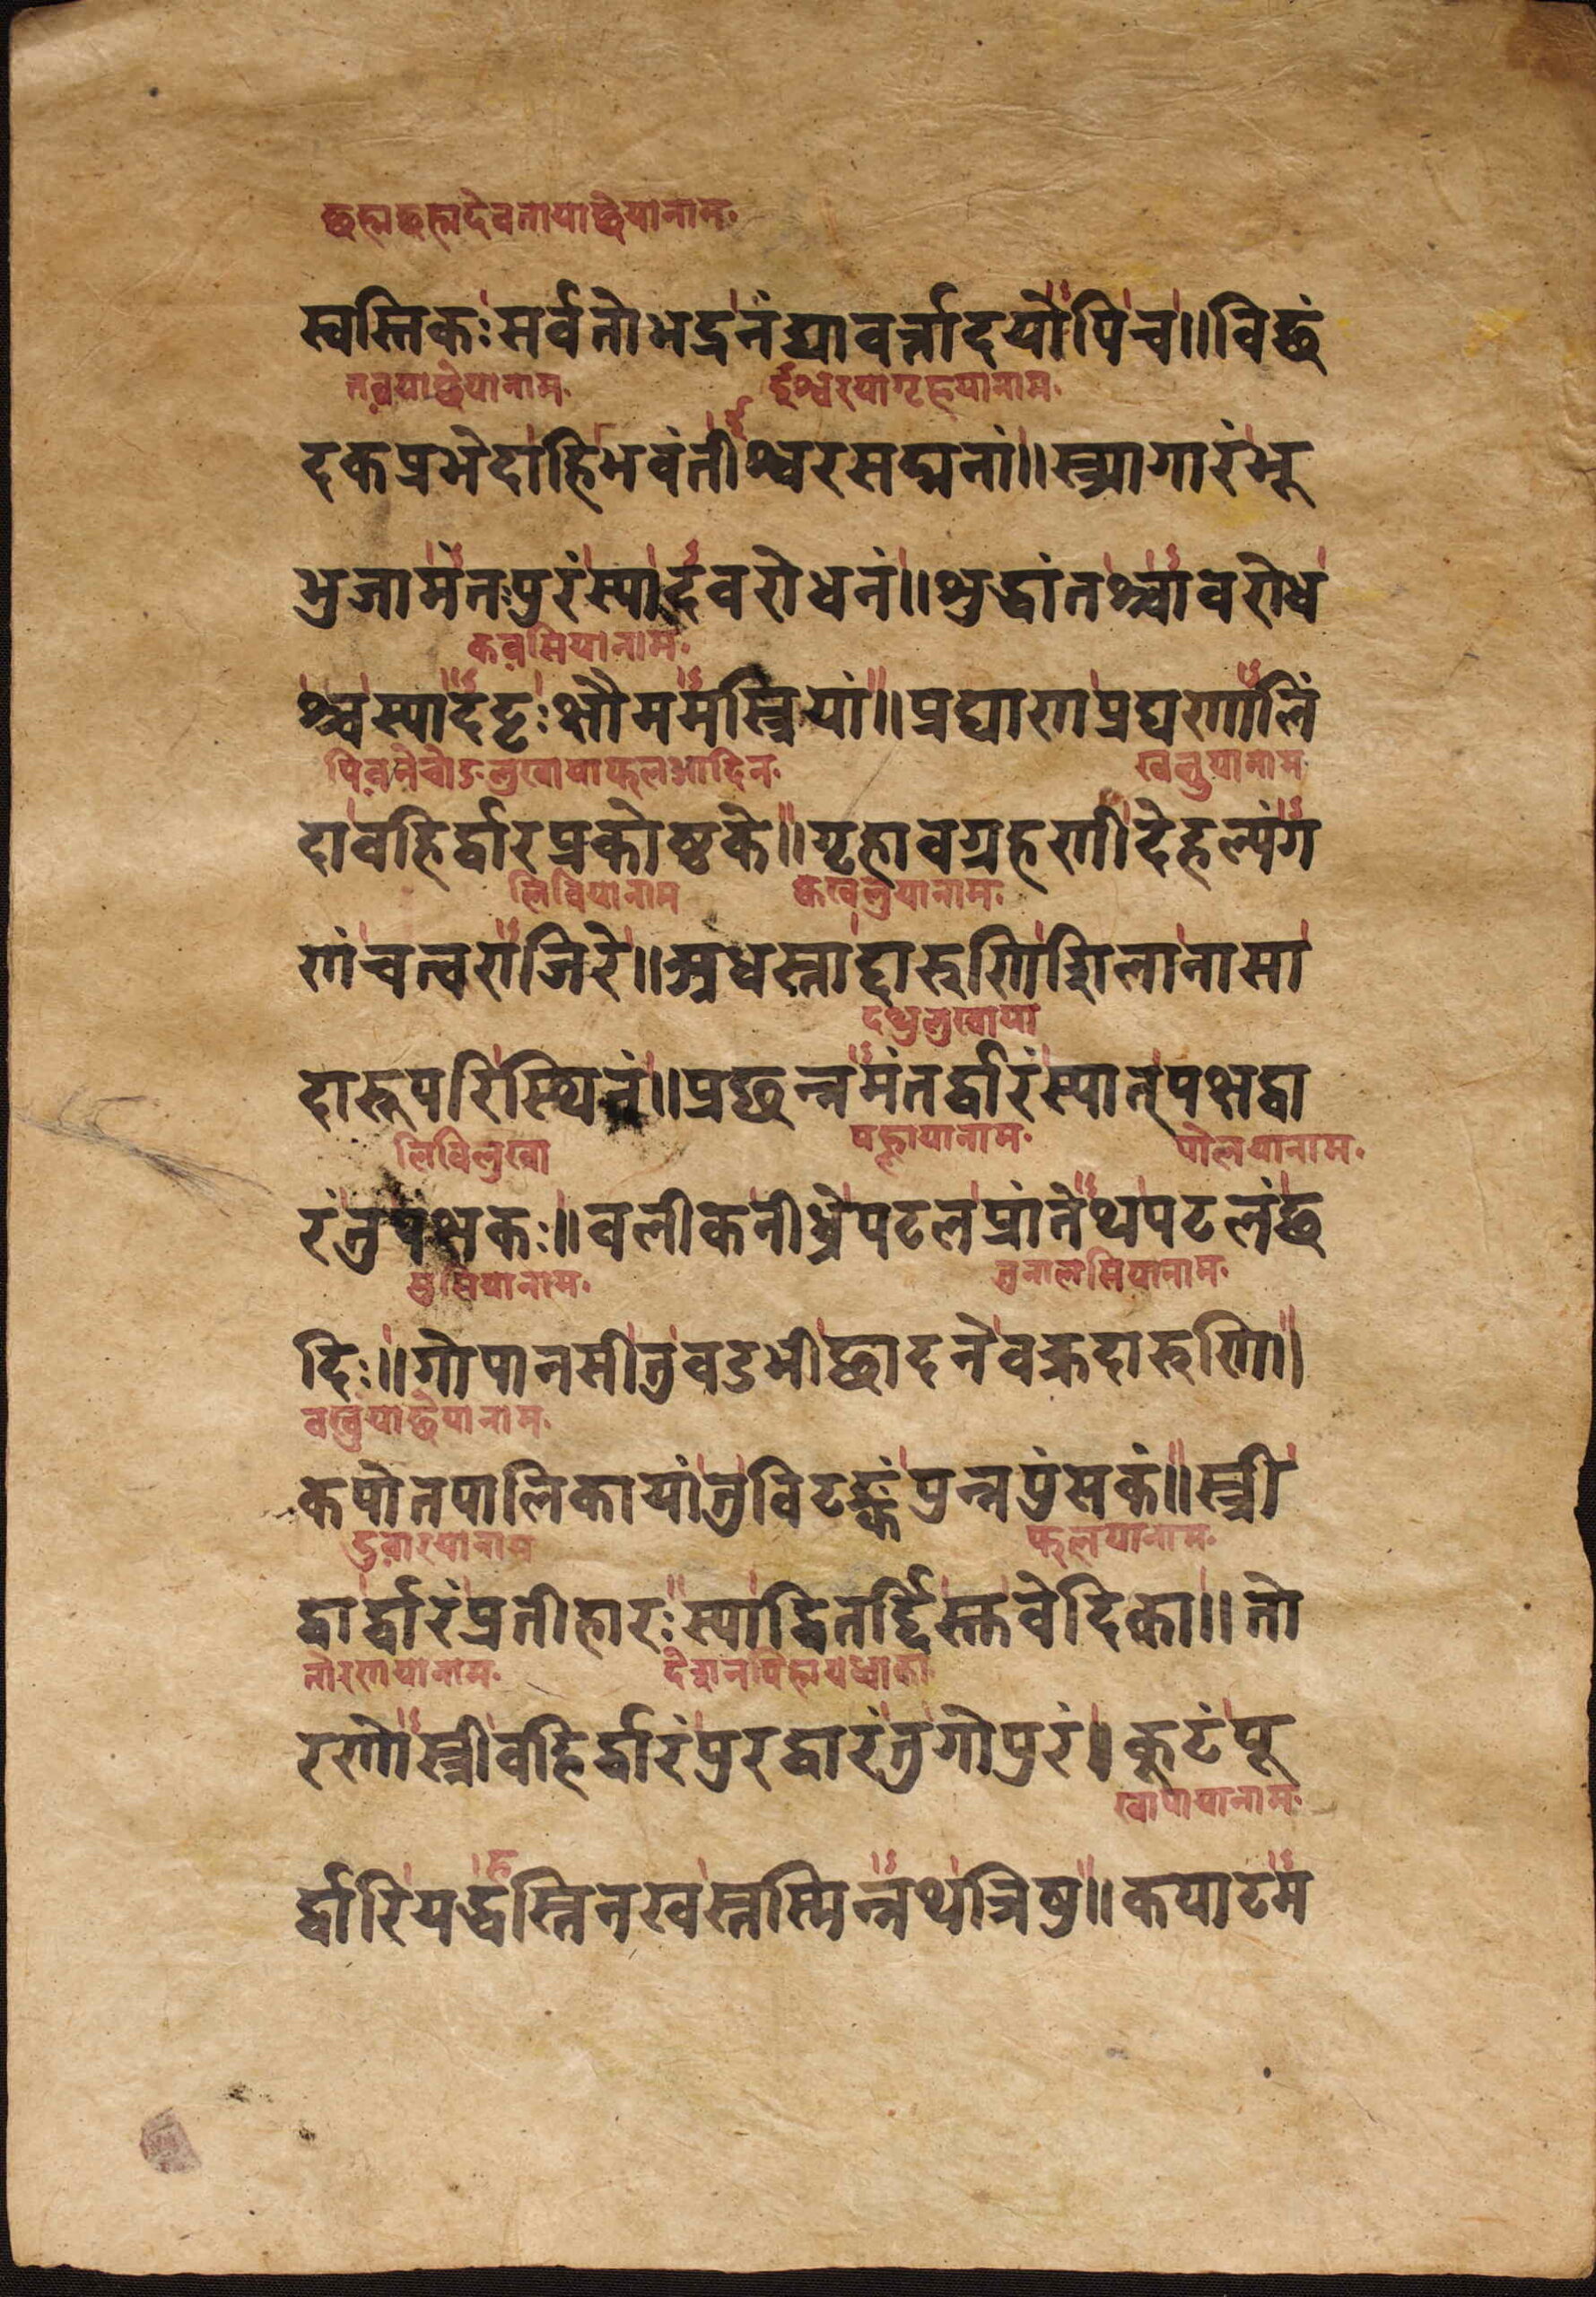 छह्माछह्मादेवतायाछेयानाम.
स्वस्तिकःसर्वतोभद्रनंद्यावर्त्तादयोपिच॥विछं
तवयाछेयानाम. ईश्वरयागृहयानाम.
दकप्रभेदाहिभवंतीश्वरसद्मनां॥स्त्र्यागारंभू
भुजामंतःपुरंस्यादवरोधनं॥शुद्धांतश्चावरोध
कवसियानाम.
श्चस्यादट्टःक्षौममस्त्रियां॥प्रघाणप्रघणालिं
पिवनेचोङलुखायाफलआदिन. खलुयानाम
दावहिर्द्वारप्रकोष्टके॥गृहावग्रहणीदेहल्यंग
लिवियानाम केखलुयानाम.
णंचत्वराजिरे॥अधस्ताद्दारुणिशिलानासा
दथुलुखाया
दारूपरिस्थितं॥प्रछन्नमंतर्द्वारंस्यात्पक्षद्वा
लिविलुखा पह्लायानाम. पोलयानाम.
रंतुपक्षकः॥वलीकनीध्रेपटलप्रांतेथपटलंछ
मुसियानाम. तुनालसियानाम.
दिः॥गोपानसीतुवडभीछादनेवक्रदारुणि॥
वखुंयाछेयानाम.
कपोतपालिकायांतुविटङ्कंपुन्नपुंसकं॥स्त्री
दुवारयानाम फलयानाम.
द्वार्द्वारंप्रतीहारःस्याद्वितर्द्दिस्तवेदिका॥तो
तोरणयानाम.
रणोस्त्रीवहिर्द्वारंपुरद्वारंतुगोपुरं॥कूटंपू
खापायानाम.
र्द्वारियद्धस्तिनखस्तस्मिन्नथत्रिषु॥कपाटम